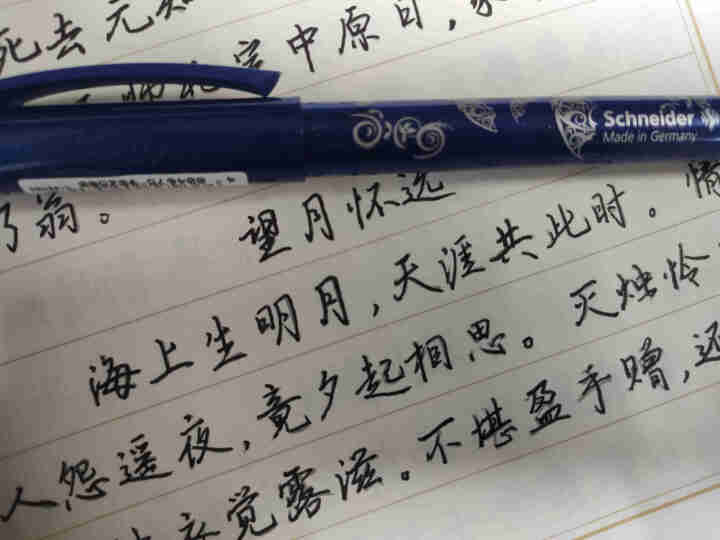 死去元知
中原日,家
Schneider
Made in Germany
翁。
望月怀远
海上生明月,天涯共此时。情
人怨遥夜,竟夕起相思。灭烛怜
衣觉露滋。不堪盈手赠,还